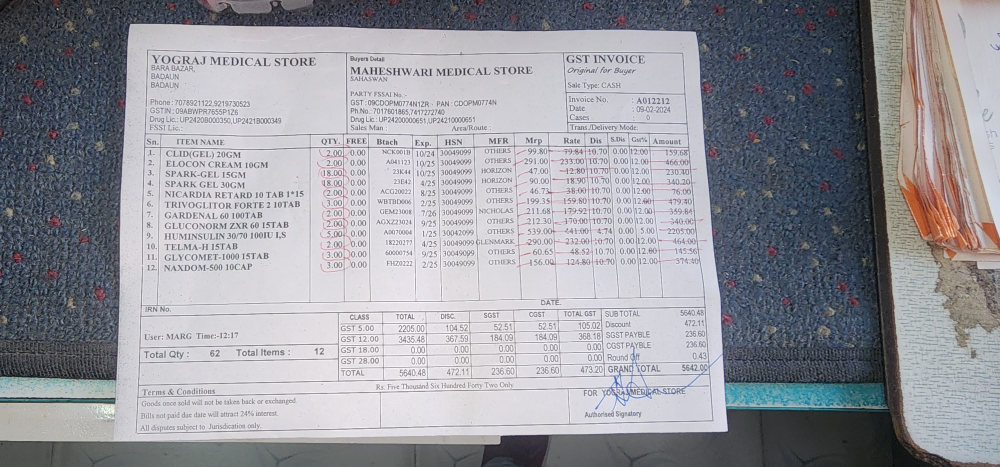 YOGRAJ MEDICAL STORE
BARA BAZAR,
BADAUN
BADAUN
Phone : 7078921122,9219730523
GSTIN : 09ABWPR7655P1Z6
Drug Lic.: UP2420B000350,UP2421B000349
FSSI Lic.:
Buyers Detail
MAHESHWARI MEDICAL STORE
SAHASWAN
PARTY FSSAI No.-
GST : 09CDOPM0774N1ZR - PAN : CDOPM0774N
Ph.No.: 7017601865,7417272740
Drug Lic.: UP24200000651,UP24210000651
Sales Man Area/Route :
GST INVOICE
Original for Buyer
Sale Type: CASH
Invoice No. : A012212
Date : 09-02-2024
Cases : 0
Trans./Delivery Mode:
Sn. ITEM NAME QTY. FREE Btach Exp. HSN MFR Mrp Rate Dis S.Dis Gst% Amount
1. CLID(GEL) 20GM 2.00 0.00 NCK001B 10/24 30049099 OTHERS 99.80 79.84 10.70 0.00 12.00 159.68
2. ELOCON CREAM 10GM 2.00 0.00 A041121 10/25 30049099 OTHERS 291.00 233.00 10.70 0.00 12.00 466.00
3. SPARK-GEL 15GM 18.00 0.00 23K44 10/25 30049099 HORIZON 47.00 12.80 10.70 0.00 12.00 230.40
4. SPARK GEL 30GM 18.00 0.00 23E42 4/25 30049099 HORIZON 90.00 18.90 10.70 0.00 12.00 340.20
5. NICARDIA RETARD 10 TAB 1*15 2.00 0.00 ACG20022 8/25 30049099 OTHERS 46.73 38.00 10.70 0.00 12.00 76.00
6. TRIVOGLITOR FORTE 2 10TAB 3.00 0.00 WBTBD006 2/25 30049099 OTHERS 199.35 159.80 10.70 0.00 12.00 479.40
7. GARDENAL 60 100TAB 2.00 0.00 GEM23008 7/26 30049099 NICHOLAS 211.68 179.92 10.70 0.00 12.00 359.84
8. GLUCONORM ZXR 60 15TAB 2.00 0.00 AGXZ23024 9/25 30049099 OTHERS 212.30 170.00 10.70 0.00 12.00 340.00
9. HUMINSULIN 30/70 100IU I,S 5.00 0.00 A0070004 1/25 30049099 OTHERS 539.00 441.00 4.74 0.00 5.00 2205.00
10. TELMA-H 15TAB 2.00 0.00 18220277 4/25 30049099 GLENMARK 290.00 232.00 10.70 0.00 12.00 464.00
11. GLYCOMET-1000 15TAB 3.00 0.00 60000754 9/25 30049099 OTHERS 60.65 48.52 10.70 0.00 12.00 145.56
12. NAXDOM-500 10CAP 3.00 0.00 FHZ0222 2/25 30049099 OTHERS 156.00 124.80 10.70 0.00 12.00 374.40
DATE.
IRN No.
User: MARG Time:-12:17
Total Qty : 62 Total Items : 12
CLASS TOTAL DISC. SGST CGST TOTAL GST
GST 5.00 2205.00 104.52 52.51 52.51 105.02
GST 12.00 3435.48 367.59 184.09 184.09 368.18
GST 18.00 0.00 0.00 0.00 0.00 0.00
GST 28.00 0.00 0.00 0.00 0.00 0.00
TOTAL 5640.48 472.11 236.60 236.60 473.20
SUB TOTAL 5640.48
Discount 472.11
SGST PAYBLE 236.60
CGST PAYBLE 236.60
Round off 0.43
GRAND TOTAL 5642.00
Rs. Five Thousand Six Hundred Forty Two Only
Terms & Conditions
Goods once sold will not be taken back or exchanged.
Bills not paid due date will attract 24% interest.
All disputes subject to Jurisdication only.
FOR YOGRAJ MEDICAL STORE
Authorised Signatory